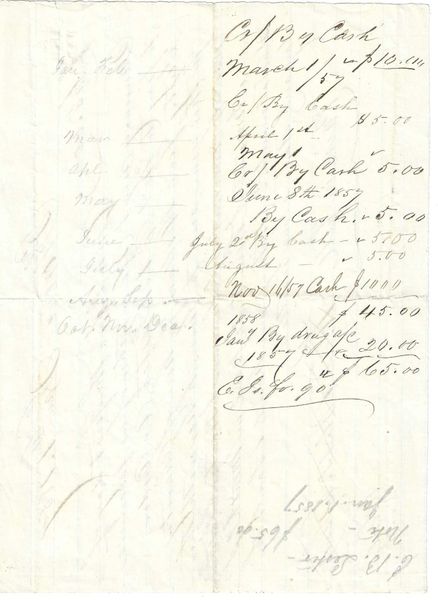 Cr/ By Cash
March 1/57 " $10.00
Cr/ By Cash
April 1st $5.00
May 1
Cr/ By Cash " 5.00
June 8th 1857
By Cash " 5.00
July 2nd By Cash – " 5.00
August – " 5.00
Nov 16/57 Cash $10.00
$45.00
1858
Jany By drug a/c
1857 20.00
" $65.00
E. Is. fo. 90
Jan. Feb.
Mar
Apl
May
June
July
Aug. Sep.
Oct. Nov. Dec.
Note –
Jan. 1. 1857
$65.00